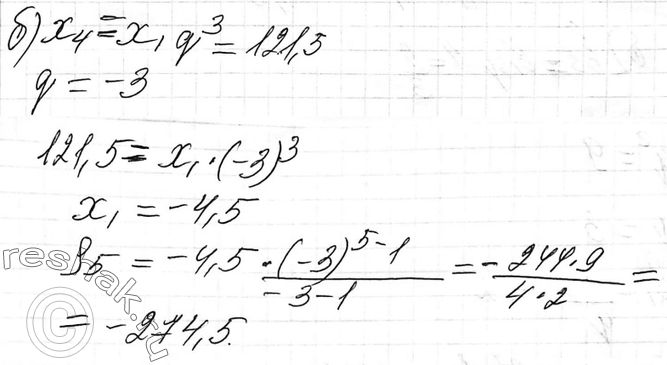 б) x₄ = x₁ q³ = 121,5
q = -3
121,5 = x₁ · (-3)³
x₁ = -4,5
S₅ = -4,5 · (-3)^5-1 / -3-1 = - 244·9 / 4·2 =
= -274,5.
reshak.ru